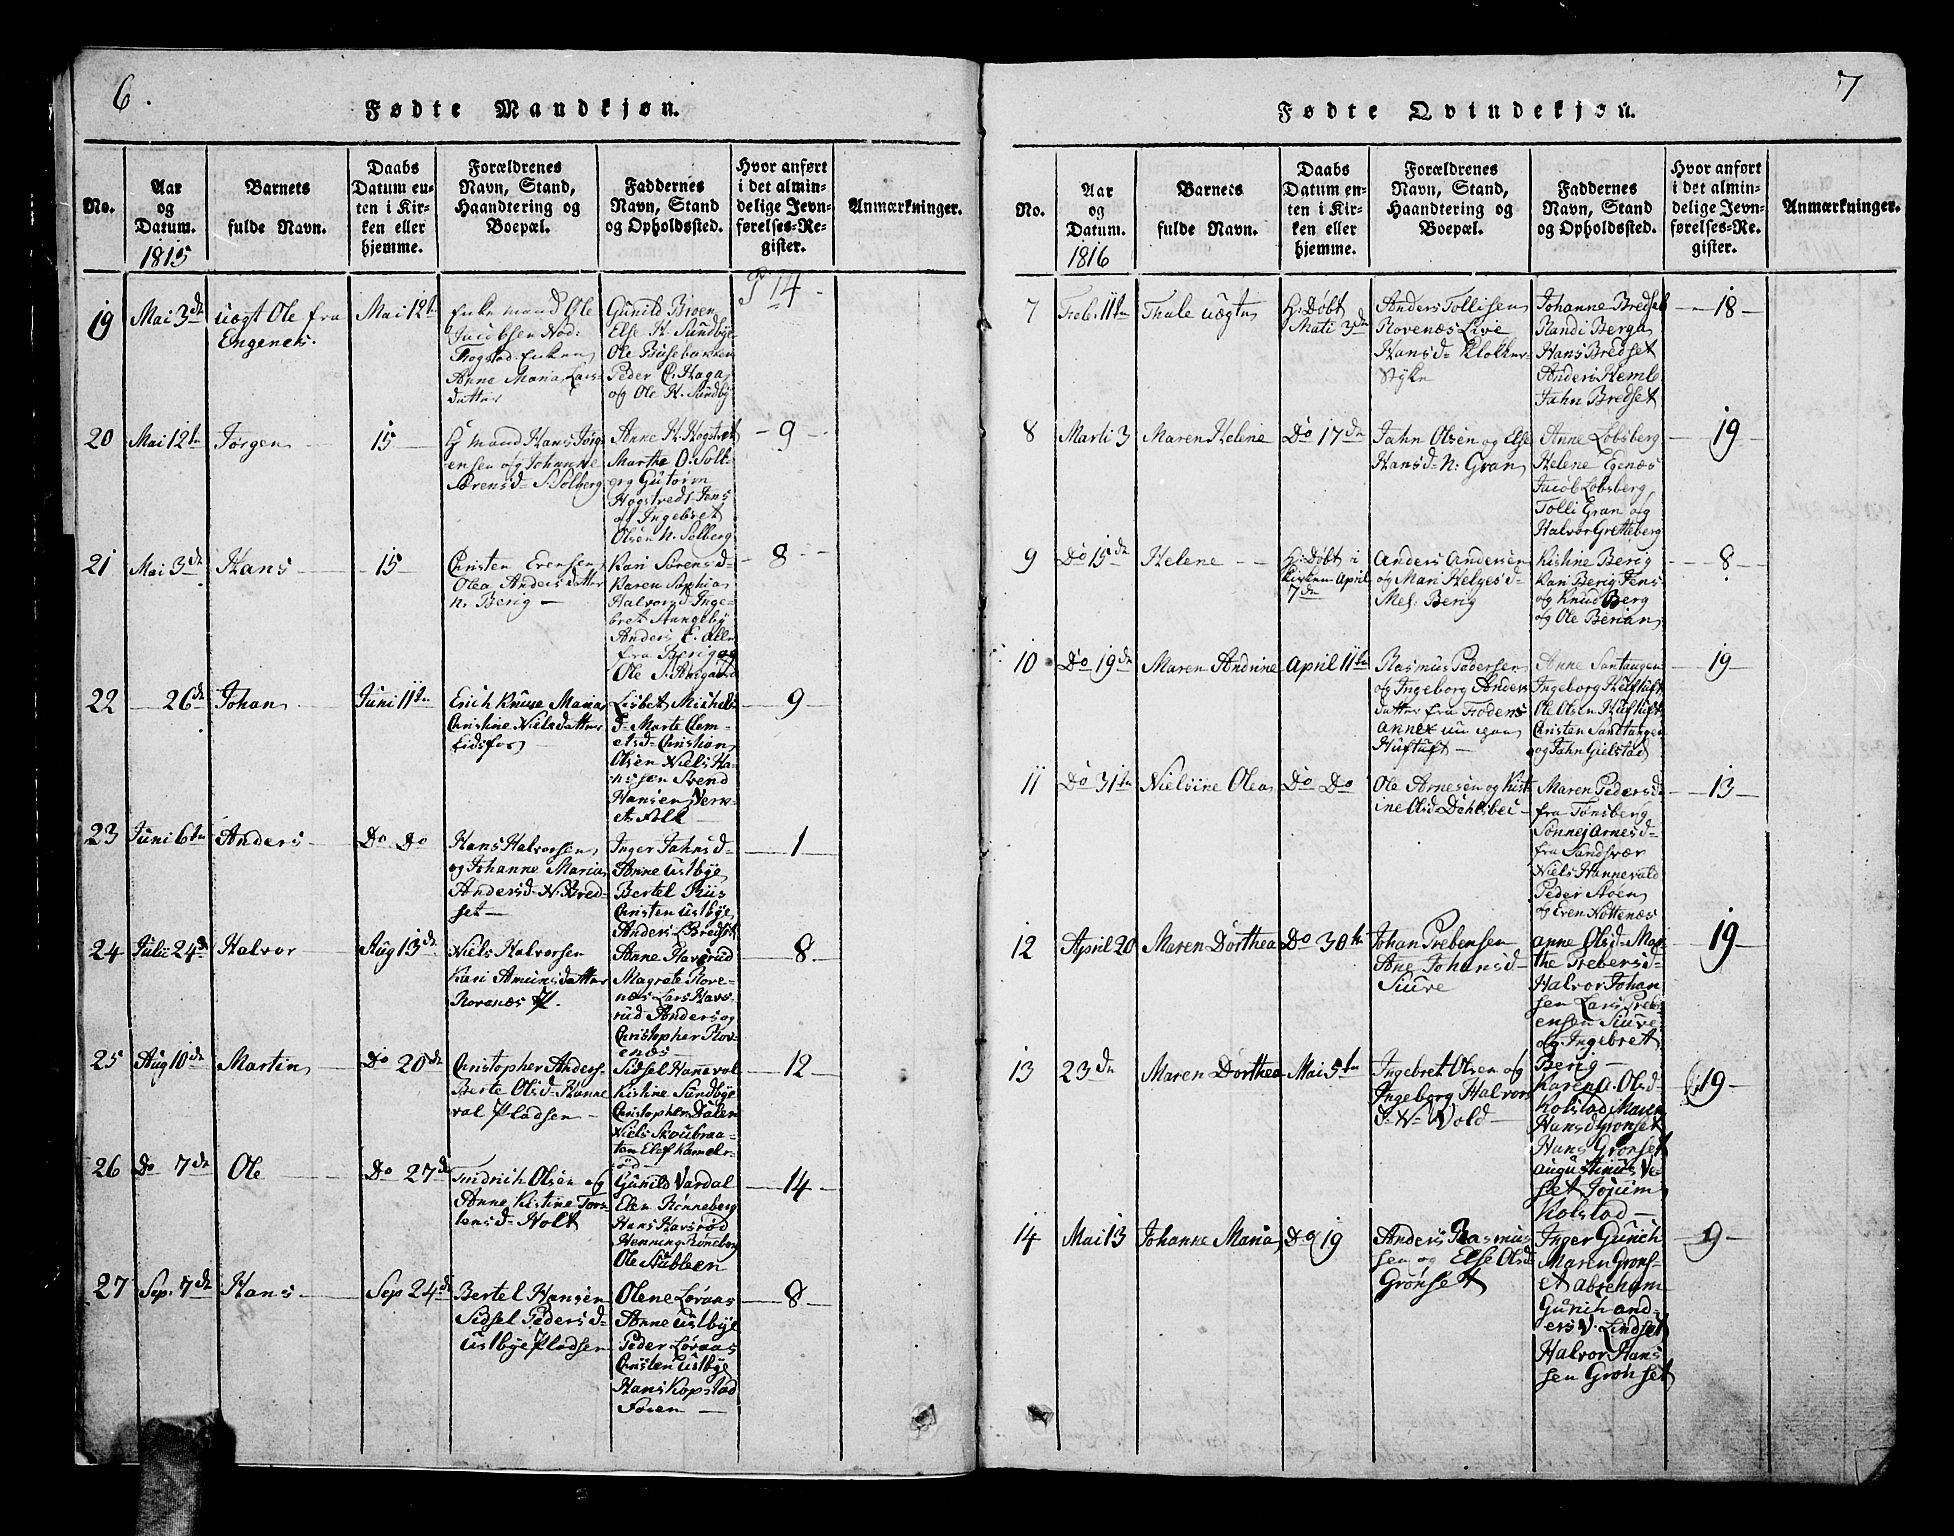 6.
Fødte Mandkjøn.
No.
Aar
og
Datum.
1815
Barnets
fulde Navn.
Daabs
Datum en-
ten i Kir-
ken eller
hjemme.
Forældrenes
Navn, Stand,
Haandtering og
Boepæl.
Faddernes
Navn, Stand
og Opholdssted.
Hvor anført
i det almin-
delige Jevn-
førelses-Re-
gister.
Anmærkninger.
19
Mai 3de
uægt Ole fra
Engenes.
Mai 12te
Enkemand Ole
Jacobsen
Anne Maria Lars-
datter
Gunild Broen
Else H. Sundbye
Ole Busebakken
Peder C. Haga
og Ole H. Sundby
P 14
20
Mai 12te
Jørgen
15
Hans Jørg-
ensen og Johanne
Sørensd- S. Solberg
Anne H. Hogstvet
Marthe O. Solb-
erg Gutorm
Hogstvedt Jens
og Ingebret
Olsen N. Solberg
9
21
Mai 3de
Hans
15
Christen Evensen
Olea Andersdatter
N. Berig
Kari Sørensd-
Karen Sophia
Halvorsd Inge-
bret
Anders E. alle
fra Berig og
Ole S.
8
22
26de
Johan
Juni 11te
Erich Knuse Maria
Christine Nielsdatter
Eidsfos
Lisbet Michels-
d- Marte Clem-
etsd- Christian
Olsen Niels Ha-
nssen Svend
Hansen Verk-
ets Folk
9
23
Juni 6te
Anders
Do Do
Hans Halvorsen
og Johanne Maria
Andersd- N. Bred-
set
Inger Jahnsd-
Anne Ustbye
Bertel Riis
Christen Ustbye
Anders Bredset
1
24
Julii 24de
Halvor
Aug 13de
Niels Halvorsen
Kari Amunsdatter
Rovenæs Pl.
Anne Havsrud
Magrete Rove-
næs Lars Havs-
rud Anders og
Christopher Rov-
enæs
8
25
Aug 10de
Martin
Do 20de
Christopher Anders-
Berte Olsd- Hanne
val Pladsen
Sidsel Hanneval
Kistine Sundbye
Christopher Dalen
Niels Skoubraa-
ten Elef Kamelr-
ød
12
26
Do 7de
Ole
Do 27de
Fredrich Olsen og
Anne Kistine Tors-
tensd- Holt
Gunild Vardal
Elen Rønneberg
Hans Ravsrød
Henning Røneberg
Ole Stubleen
14
27
Sep. 7de
Hans
Sep 24de
Bertel Hansen
Sidsel Pedersd-
Ustbye Pladsen
Olene Løraas
Anne Ustbye
Peder Løraas
Christen Ustbye
Hans Kopstad
Foien
8
7
Fødte Qvindekjøn.
No.
Aar
og
Datum.
1816
Barnets
fulde Navn.
Daabs
Datum en-
ten i Kir-
ken eller
hjemme.
Forældrenes
Navn, Stand,
Haandtering og
Boepæl.
Faddernes
Navn, Stand
og Opholdssted.
Hvor anført
i det almin-
delige Jevn-
førelses-Re-
gister.
Anmærkninger.
7
Feb: 11te
Thale uægte
H: Døbt
Marti 3de
Anders Tollefsen
Rovenæs Live
Hansd- Klokker-
Styke
Johanne Bredset
Randi Berga
Hans Bredset
Anders Hemb
Jahn Bredset
18
8
Marti 3
Maren Helene
Do 17de
Jahn Olsen og Else
Hansd- N: Gran
Anne Lobsberg
Helene Egenæs
Jacob Lobsberg,
Tolli Gran og
Halvor Gretteberg
19
9
Do 15de
Helene
H: Døbt i
Kirken April
7de
Anders Andersen
og Mari Helgesd-
Mel: Berig
Kistine Berig
Kari Berig Jens
og Knud Berg
og Ole Berian
8
10
Do 19de
Maren Andrine
April 11te
Rasmus Pedersen
og Ingeborg Anders
datter fra
annex
Huftuft
Anne Santangen
Ingeborg Huftuft
Ole Olsen Huftuft
Christen Santangen
og Jahn Gulstad
19
11
Do 31te
Nielsine Olea
Do Do
Ole Arnesen og Kist
ine Olsd- Dahlsbec
Maren Pedersd
fra Tønsberg
Sonnej Arnesd-
fra Sandsvær
Niels Hanneval
Peder Moen
og Even Nottenæs
13
12
April 20
Maren Dorthea
Do 30te
Johan Prebensen
Ane Johansd-
Siure
Anne Olsd- Mar
the Prebensd-
Halvor Johan
sen Lars Preb-
ensen Siure
og Ingebret
Berig
19
13
23de
Maren Dorthea
Mai 5te
Ingebret Olsen og
Ingeborg Halvors
d- N- Vold
Karen A. Olsd-
Kolstad Maren
Hansd Grønset
Hans Grønset
Augustinus Ve-
set Jocum
Kolstad
19
14
Mai 13
Johanne Maria
Do 19
Anders Rasmus
sen og Else Olsd
Grønset
Inger Gurich
Maren Grøns-
et Abreham
Gurich And-
ers V. Lindset
Halvor Hans
sen Grønset
9